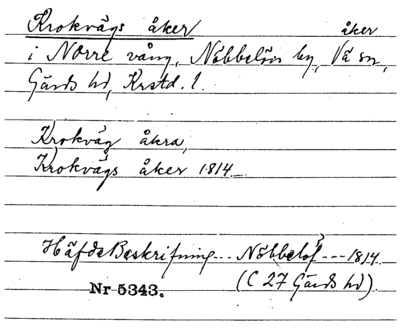 Krokvägs åker åker
i Norre vång, Nöbbelövs by, Vä sn,
Gärds hd, Krstd. l.
Krokväg åkra,
Krokvägs åker 1814
Häfde Beskrifning... Nöbbelöf --- 1814
Nr 5343. (C 27 Gärds hd).